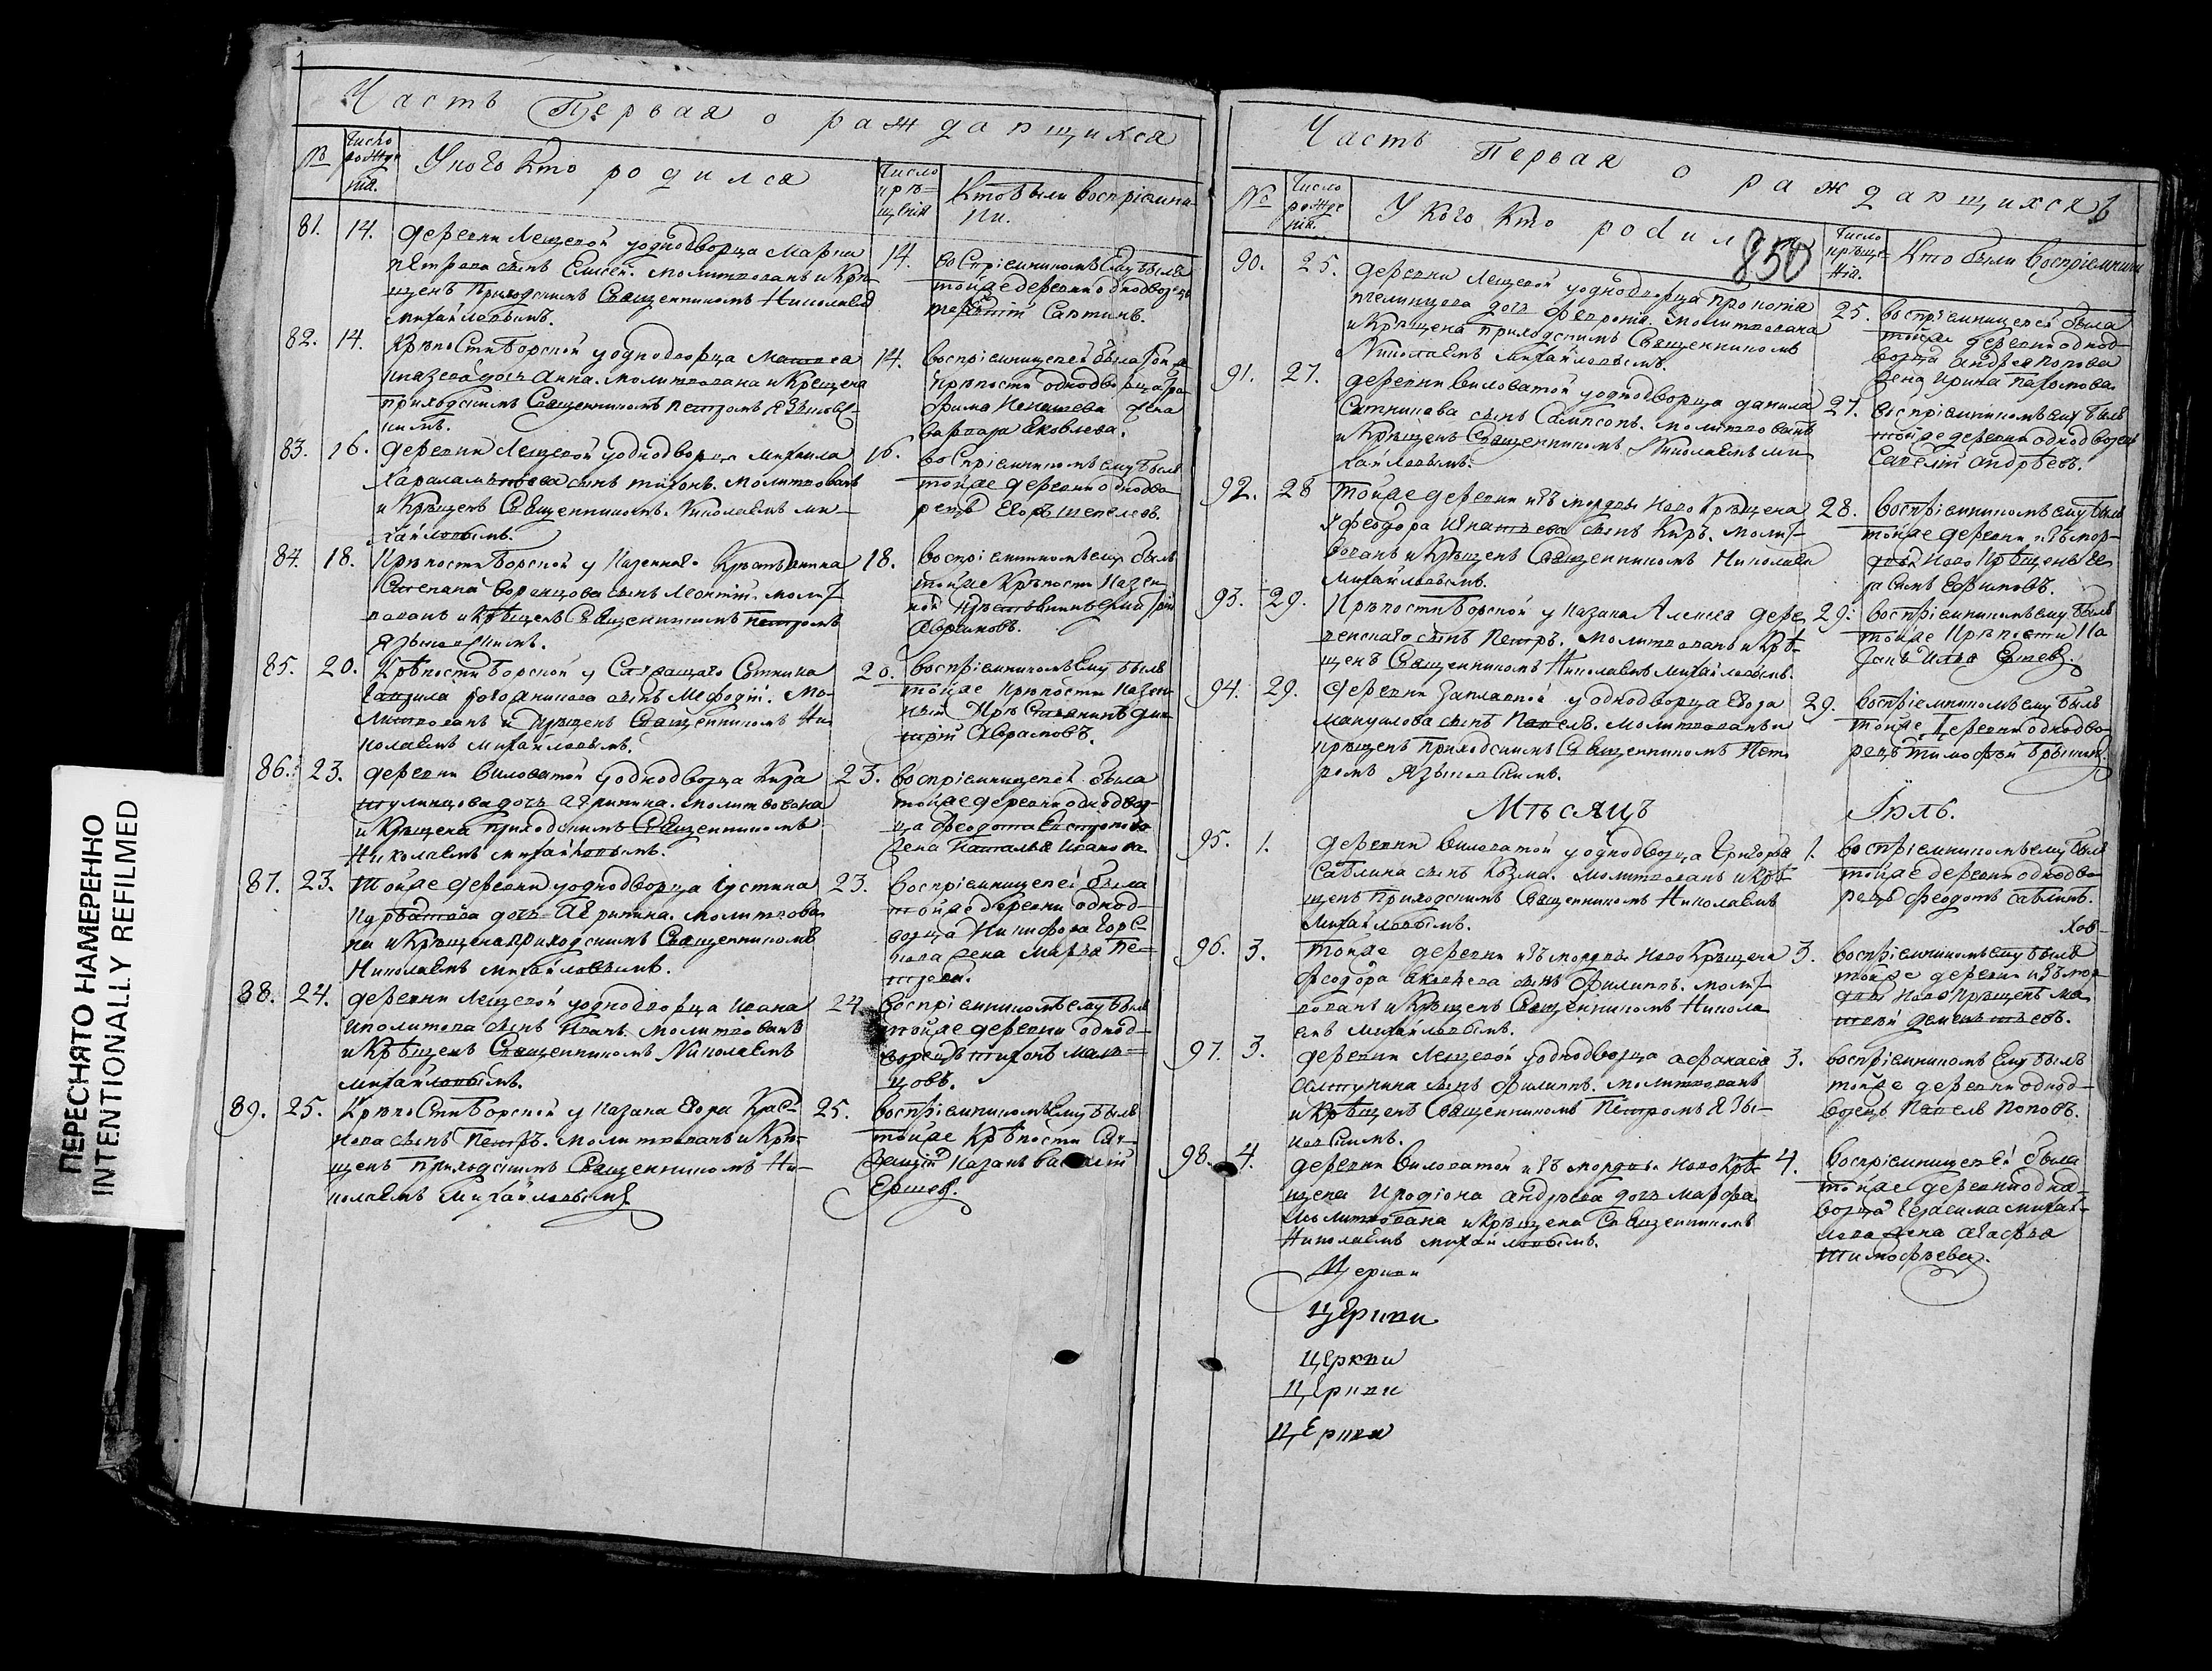 Часть Первая о раждающихся
№
Число рожде нія.
У кого кто родился
Число крѣ= щенія
Кто были воспріемни= ки.
81. 14.
деревни Лещевой у однодворца Марка
Петрова сынъ Елисей. молитвованъ и Крѣ=
щенъ Приходскимъ Священникомъ Николаемъ
Михайловымъ.
14.
воспріемникомъ Ему былъ
тойже деревни однодворецъ
82. 14.
Крѣпости Борской у однодворца
дочь Анна. молитвована и Крещена
приходскимъ Священникомъ Петромъ Языков=
кимъ.
14.
воспріемницею была
крѣпости однодворца
жена
варвара Яковлева.
83. 16.
деревни Лещевой у однодворца Михаила
сынъ тихонъ. молитвованъ
и Крѣщенъ Священникомъ Николаемъ Ми=
хайловымъ.
16.
воспріемникомъ ему былъ
тойже деревни однодво=
рецъ Егоръ Шепелевъ.
84. 18.
Крѣпости Борской у Казеннаго Крѣстьянина
Степана Воронцова сынъ Леонтій. молит=
вованъ и Крѣщенъ Священникомъ Петромъ
18.
воспріемникомъ ему былъ
тойже Крѣпости Казен
ной Крѣстьянинъ
85. 20.
Крѣпости Борской у Сотника
сынъ Мефодій. Мо=
литвованъ и Крѣщенъ Священникомъ Ни
колаемъ Михайловымъ.
20.
воспріемникомъ Ему былъ
тойже Крѣпости Казен
ный Крѣстьянинъ Дми
трій Аврамовъ.
86. 23.
деревни Виловатой у однодворца Кира
дочь Агрипина. молитвована
и Крѣщена приходскимъ Священникомъ
Николаемъ Михайловымъ.
23.
воспріемницею была
тойже деревни однодвор=
ца Феодота
жена Наталья Иванова
87. 23.
Тойже деревни у однодворца Іустина
дочь Агрипина. молитвова
на и Крѣщена приходскимъ Священникомъ
Николаемъ Михайловымъ.
23.
воспріемницею была
тойже деревни однод=
ворца Никифора
жена Марѳа Пе=
трова.
88. 24.
деревни Лещевой у однодворца Ивана
Иполитова сынъ Иванъ. молитвованъ
и Крѣщенъ Священникомъ Николаемъ
Михайловымъ.
24.
воспріемникомъ ему былъ
тойже деревни однод=
ворецъ тихонъ Маль=
цовъ.
89. 25.
Крѣпости Борской у Казака Егора Крас=
нова сынъ Петръ. молитвованъ и Крѣ=
щенъ приходскимъ Священникомъ Ни=
колаемъ Михайловымъ.
25.
воспріемникомъ Ему былъ
тойже Крѣпости
Казакъ Василій
Ершовъ.
Часть Первая о раждающихся
850
№
Число рожде нія.
У кого кто родился
Число крѣще нія.
Кто были воспріемники
90. 25.
деревни Лещевой у однодворца Прокопія
Пчелинцева дочь Февронія. молитвована
и Крѣщена приходскимъ Священникомъ
Николаемъ Михайловымъ.
25.
воспріемницею была
тойже деревни однод=
ворца Андрея Попова
жена Ирина
91. 27.
деревни Виловатой у однодворца Данила
Ситникова сынъ Сампсонъ. молитвованъ
и Крѣщенъ Священникомъ Николаемъ Ми
хайловымъ.
27.
воспріемникомъ ему былъ
тойже деревни однодворецъ
Савелій Андрѣевъ.
92. 28
Тойже деревни изъ мордвы Ново Крѣщена
у феодора Игнатьева сынъ Киръ. молит=
вованъ и Крѣщенъ Священникомъ Николаем
Михайловымъ.
28.
воспріемникомъ ему былъ
тойже деревни изъ мор=
двы Ново Крѣщенъ Ге
расимъ Ефимовъ.
93. 29.
Крѣпости Борской у Казака Алексея Дере
венскаго сынъ Петръ. молитвованъ и Крѣ=
щенъ Священникомъ Николаемъ Михайловымъ.
29.
воспріемникомъ ему былъ
тойже Крѣпости Ка
закъ Илья Ершовъ.
94. 29.
деревни Заплавной у однодворца Егора
Мануилова сынъ Павелъ. молитвованъ и
крѣщенъ приходскимъ Священникомъ Пет
ромъ Языковскимъ.
29.
воспріемникомъ ему былъ
тойже Деревни однодво
рецъ Тимофей
Мѣсяцъ Іюль.
95. 1.
деревни Виловатой у однодворца Григорья
Саблина сынъ Козма. молитвованъ и Крѣ=
щенъ приходскимъ Священникомъ Николаемъ
Михайловымъ.
1.
воспріемникомъ ему былъ
тойже деревни однодво
рецъ Феодотъ Саблинъ.
96. 3.
Тойже деревни изъ мордвы Ново Крѣщена
Феодора сынъ Филиппъ. молит=
вованъ и Крѣщенъ Священникомъ Никола
емъ Михайловымъ.
3.
воспріемникомъ ему былъ
тойже деревни изъ мор
двы Ново Крѣщенъ Ма
твѣй Деменьтьевъ.
97. 3.
деревни Лещевой у однодворца Афанасія
сынъ Филиппъ. молитвованъ
и Крѣщенъ Священникомъ Петромъ Язы=
ковскимъ.
3.
воспріемникомъ Ему былъ
тойже деревни однод=
ворецъ Павелъ Поповъ.
98. 4.
деревни Виловатой изъ мордвы Ново Крѣ=
щена Иродіона Андрѣева дочь Марфа.
Молитвована и Крѣщена Священникомъ
Николаемъ Михайловымъ.
4.
воспріемницею была
тойже деревни одно=
ворца Герасима
жена Агафья
Тимофѣева.
Церкви
Церкви
Церкви
Церкви
Церкви
ПЕРЕСНЯТО НАМЕРЕННО
INTENTIONALLY REFILMED